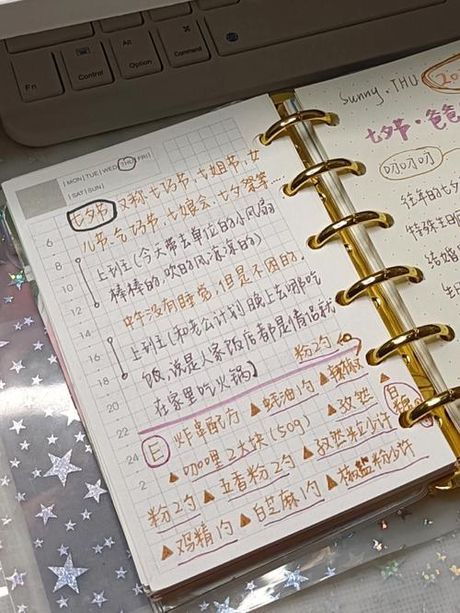 Fn
Control
Alt
Option
Command
MON|TUE|WED|THU|FRI|
|SAT|SUN|
七夕节,又称七巧节、七姐节、女
儿节、乞巧节、七娘会、七夕祭等…
上到班(今天带去单位的小风扇
棒棒的,吹的风凉凉的)
中午没有睡觉,但是不困的.
上到班(和老公计划晚上去哪吃
饭,说是人家饭店都是情侣我
在家里吃火锅)
粉2勺
炸串配方 ▲蚝油1勺 ▲辣椒
▲咖喱2大块(50g) ▲孜然
粉2勺 ▲五香粉2勺 ▲孜然粒少许
▲鸡精1勺 ▲白芝麻1勺 ▲椒盐粉少许
6
8
10
12
14
16
18
20
22
24
2
Sunny. THU
七夕节·爸爸
叨叨叨
往年的七夕
特殊
结婚